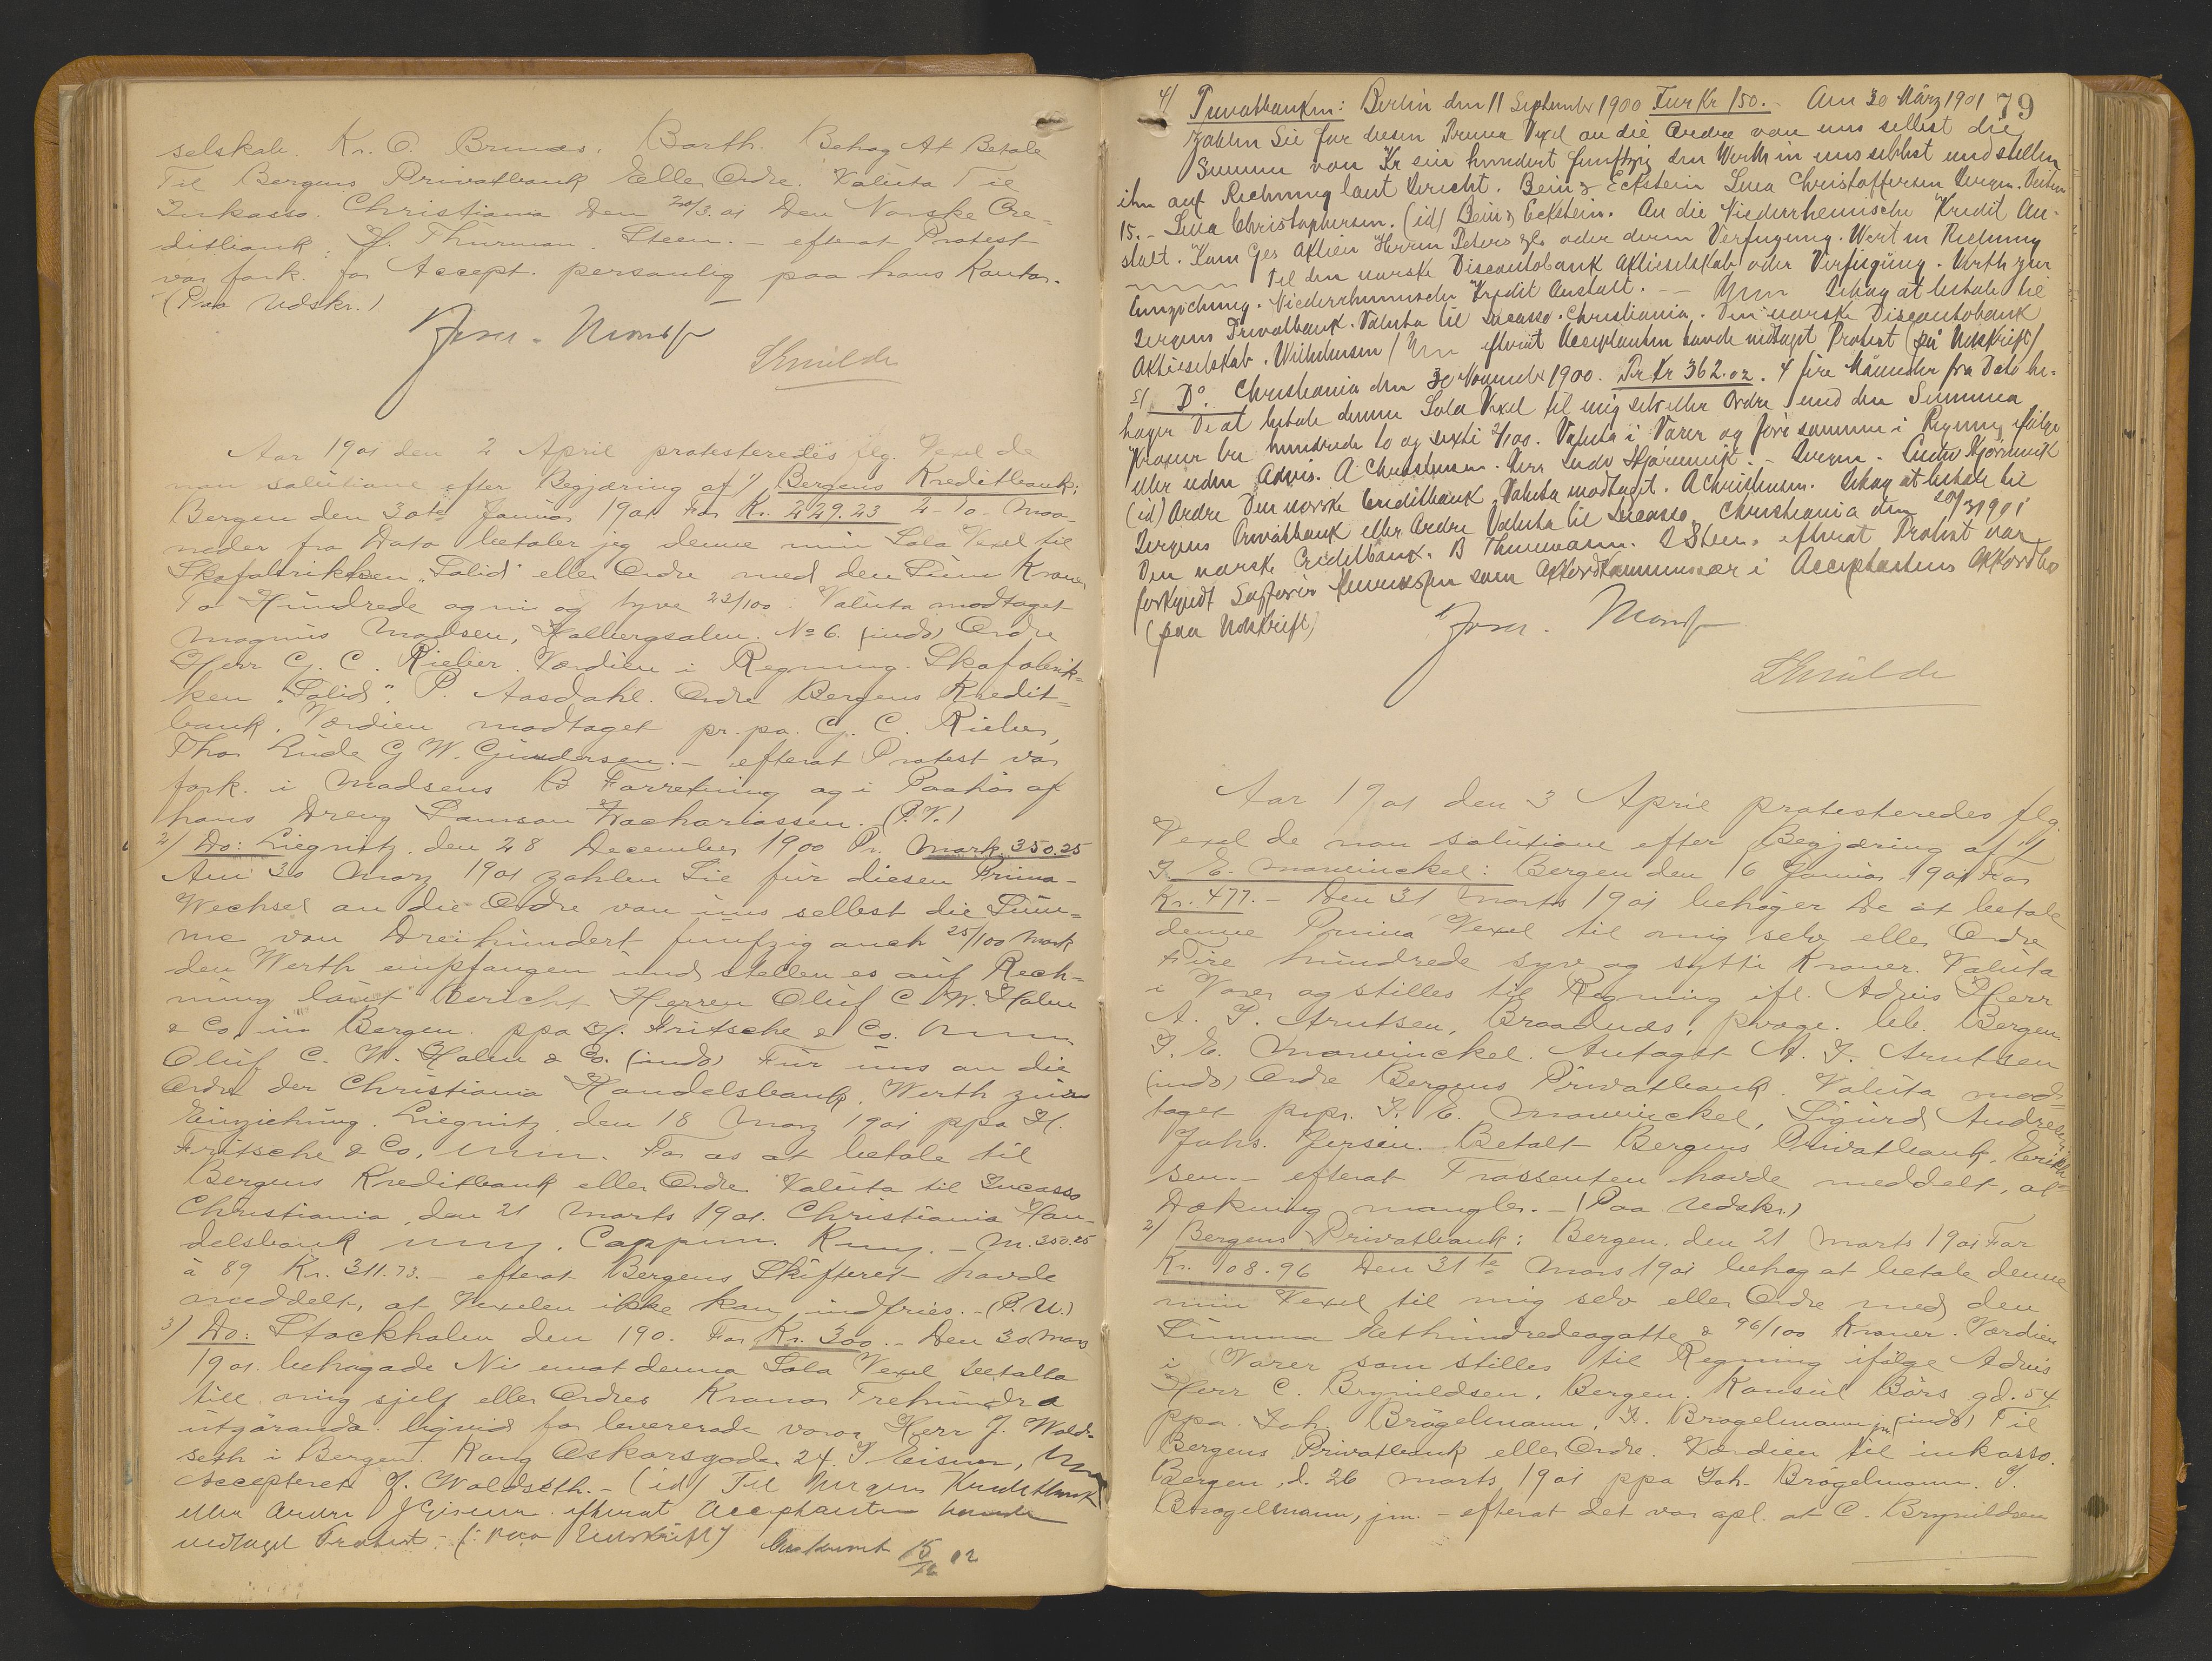 selskab. Kr. O. Brunæs. Barth. Behag At Betale
Til Bergens Privatbank Eller Ordre. Valuta Til
Inkasso. Christiania Den 20/3. 01 Den Norske Cre-
ditbank. H. Thurman. Steen. – efterat Protest
var fork. for Accept. personlig paa hans Kontor.
(Paa Udskr.)
Aar 1901 den 2 April protesteredes flg. Vexel de
non salutione efter Begjæring af 1) Bergens Kreditbank:
Bergen den 30te Januar 1901 For Kr. 229.23 2 - To - Maa-
neder fra Dato betaler jeg denne min Sola Vexel til
Skofabrikken "Solid" eller Ordre med den Sum Kroner
To Hundrede og ni og tyve 23/100. Valuta modtaget
Magnus Madsen, Holbergsalm. No 6. (inds) Ordre
Herr G. C. Rieber. Værdien i Regning. Skofabrik-
ken "Solid". P. Aasdahl. Ordre Bergens Kredit-
bank. Værdien modtaget pr. pa. G. C. Rieber,
Thor Lude G W. Gundersen. – efterat Protest var
fork. i Madsens Forretning og i Paahør af
hans Dreng Samson Zachariassen. (P.U.)
2) Do: Liegnitz. den 28 December 1900 Pr. Mark 350.25
Am 30 Marz 1901 zahlen Sie für diesen Prima-
Wechsel an die Ordre von uns selbst die Sum-
me von Dreihundert fünfzig auch 25/100 Mark
den Werth empfangen und stellen es auf Rech-
nung laut Bericht Herren Oluf C. W. Holm
& Co. in Bergen. ppa H. Fritsche & Co.
Oluf C. W. Holm & Co. (inds) Für uns an die
Ordre der Christiania Handelsbank. Werth zum
Einziehung. Liegnitz, den 18 Marz 1901 ppa H.
Fritsche & Co. For os at betale til
Bergens Kreditbank eller Ordre Valuta til Incasso
Christiania, den 21 Marts 1901. Christiania Han-
delsbank – M. 350.25
à 89 Kr. 311.73. – efterat Bergens Skifteret havde
meddelt, at Vexelen ikke kan indfries. – (P.U.)
3) Do: Stockholm den 190. For Kr. 300. – Den 30 Mars
1901. behagade Ni emot denna Sola Vexel betalla
till mig sjelf eller Ordres Kronor Trehundra
utgörande liqvid for levererade varor Herr J. Wold-
seth i Bergen. Kong Oskarsgade 24. J Eisner,
Accepteret J. Woldseth. – (id) Til Bergens Kreditbank
eller Ordre J Eisner. efterat Acceptanten havde
vedtaget Protest. (: paa Udskrift)
79
4) Privatbanken: Berlin den 11 September 1900 Fur Kr 150. – Am 30 März 1901
Zahlen Sie für diesen Prima Vexel an die Ordre von uns selbst die
Summe von Kr ein hundert funftzig den Werth in uns selbst und stellen
ihn auf Rechnung laut Bericht. Bein & Eckstein Lina Christoffersen Bergen.
15. – Lina Christophersen. (id) Bein & Eckstein. An die Niederrheinische Kredit An-
stalt. Kom Ges Aktien Herrn Peters & Co oder deren Verfugung. Wert in Rechnung
Til den norske Discontobank Aktieselskab oder Verfugung. Werth zur
Einziehung. Niederrheinische Kredit Anstalt. – – Behag at betale til
Bergens Privatbank. Valuta til Incasso. Christiania. Den norske Discontobank
Aktieselskab. Wilhelmsen / efterat Acceptanten havde vedtaget Protest (på Udskrift)
5) Do. Christiania den 30 November 1900. Pr Kr 362.02. 4 fire Maaneder fra Dato be-
hager De at betale denne Sola Vexel til mig selv eller Ordre med den Summa
Kroner tre hundrede to og sexti 2/100. Valuta i Varer og føre samme i Regning ifølge
eller uden Advis. A Christensen. Herr Ludv Hjørnevik. – Bergen. Ludv Hjørnevik
(id) Ordre Den norske Creditbank Valuta modtaget. A Christensen. Behag at betale til
Bergens Privatbank eller Ordre Valuta til Incasso. Christiania den 20/3 1901
Den norske Creditbank. B Thurmann. O Steen. efterat Protest var
forkyndt Sagfører som Akkordkommissær i Acceptantens Akkordbo
(paa Udskrift)
Aar 1901 den 3 April protesteredes flg.
Vexel de non salutione efter Begjæring af 1)
J. E. Mowinckel: Bergen den 16 Januar 1901 For
Kr. 477. – Den 31 Marts 1901 behager De at betale
denne Prima Vexel til mig selv eller Ordre
Fire hundrede syv og sytti Kroner. Valuta
i Varer og stilles til Regning ifl. Advis Herr
A. J. Arntsen, Bergen
J. E. Mowinckel. Antaget A. J. Arntsen
(inds) Ordre Bergens Privatbank. Valuta mod-
taget prpr. J. E. Mowinckel, Sigurd
Johs. Betalt Bergens Privatbank. Erik-
sen. – efterat Trassenten havde meddelt, at
Dækning mangler. – (Paa Udskr.)
2) Bergens Privatbank: Bergen. den 21 Marts 1901 For
Kr. 108.96 Den 31te Mars 1901 behag at betale denne
min Vexel til mig selv eller Ordre med den
Summa Ethundredeogotte & 96/100 Kroner. Værdien
i Varer som stilles til Regning ifølge Advis
Herr C. Brynildsen. Bergen. Konsul Börs gd. 54
ppa. Joh. Brögelmann, J. Brögelmann jn (inds) Til
Bergens Privatbank eller Ordre. Værdien til inkasso.
Bergen, d. 26 marts 1901 ppa Joh. Brögelmann. J.
Brögelmann, jn. – efterat det var opl. at C. Brynildsen